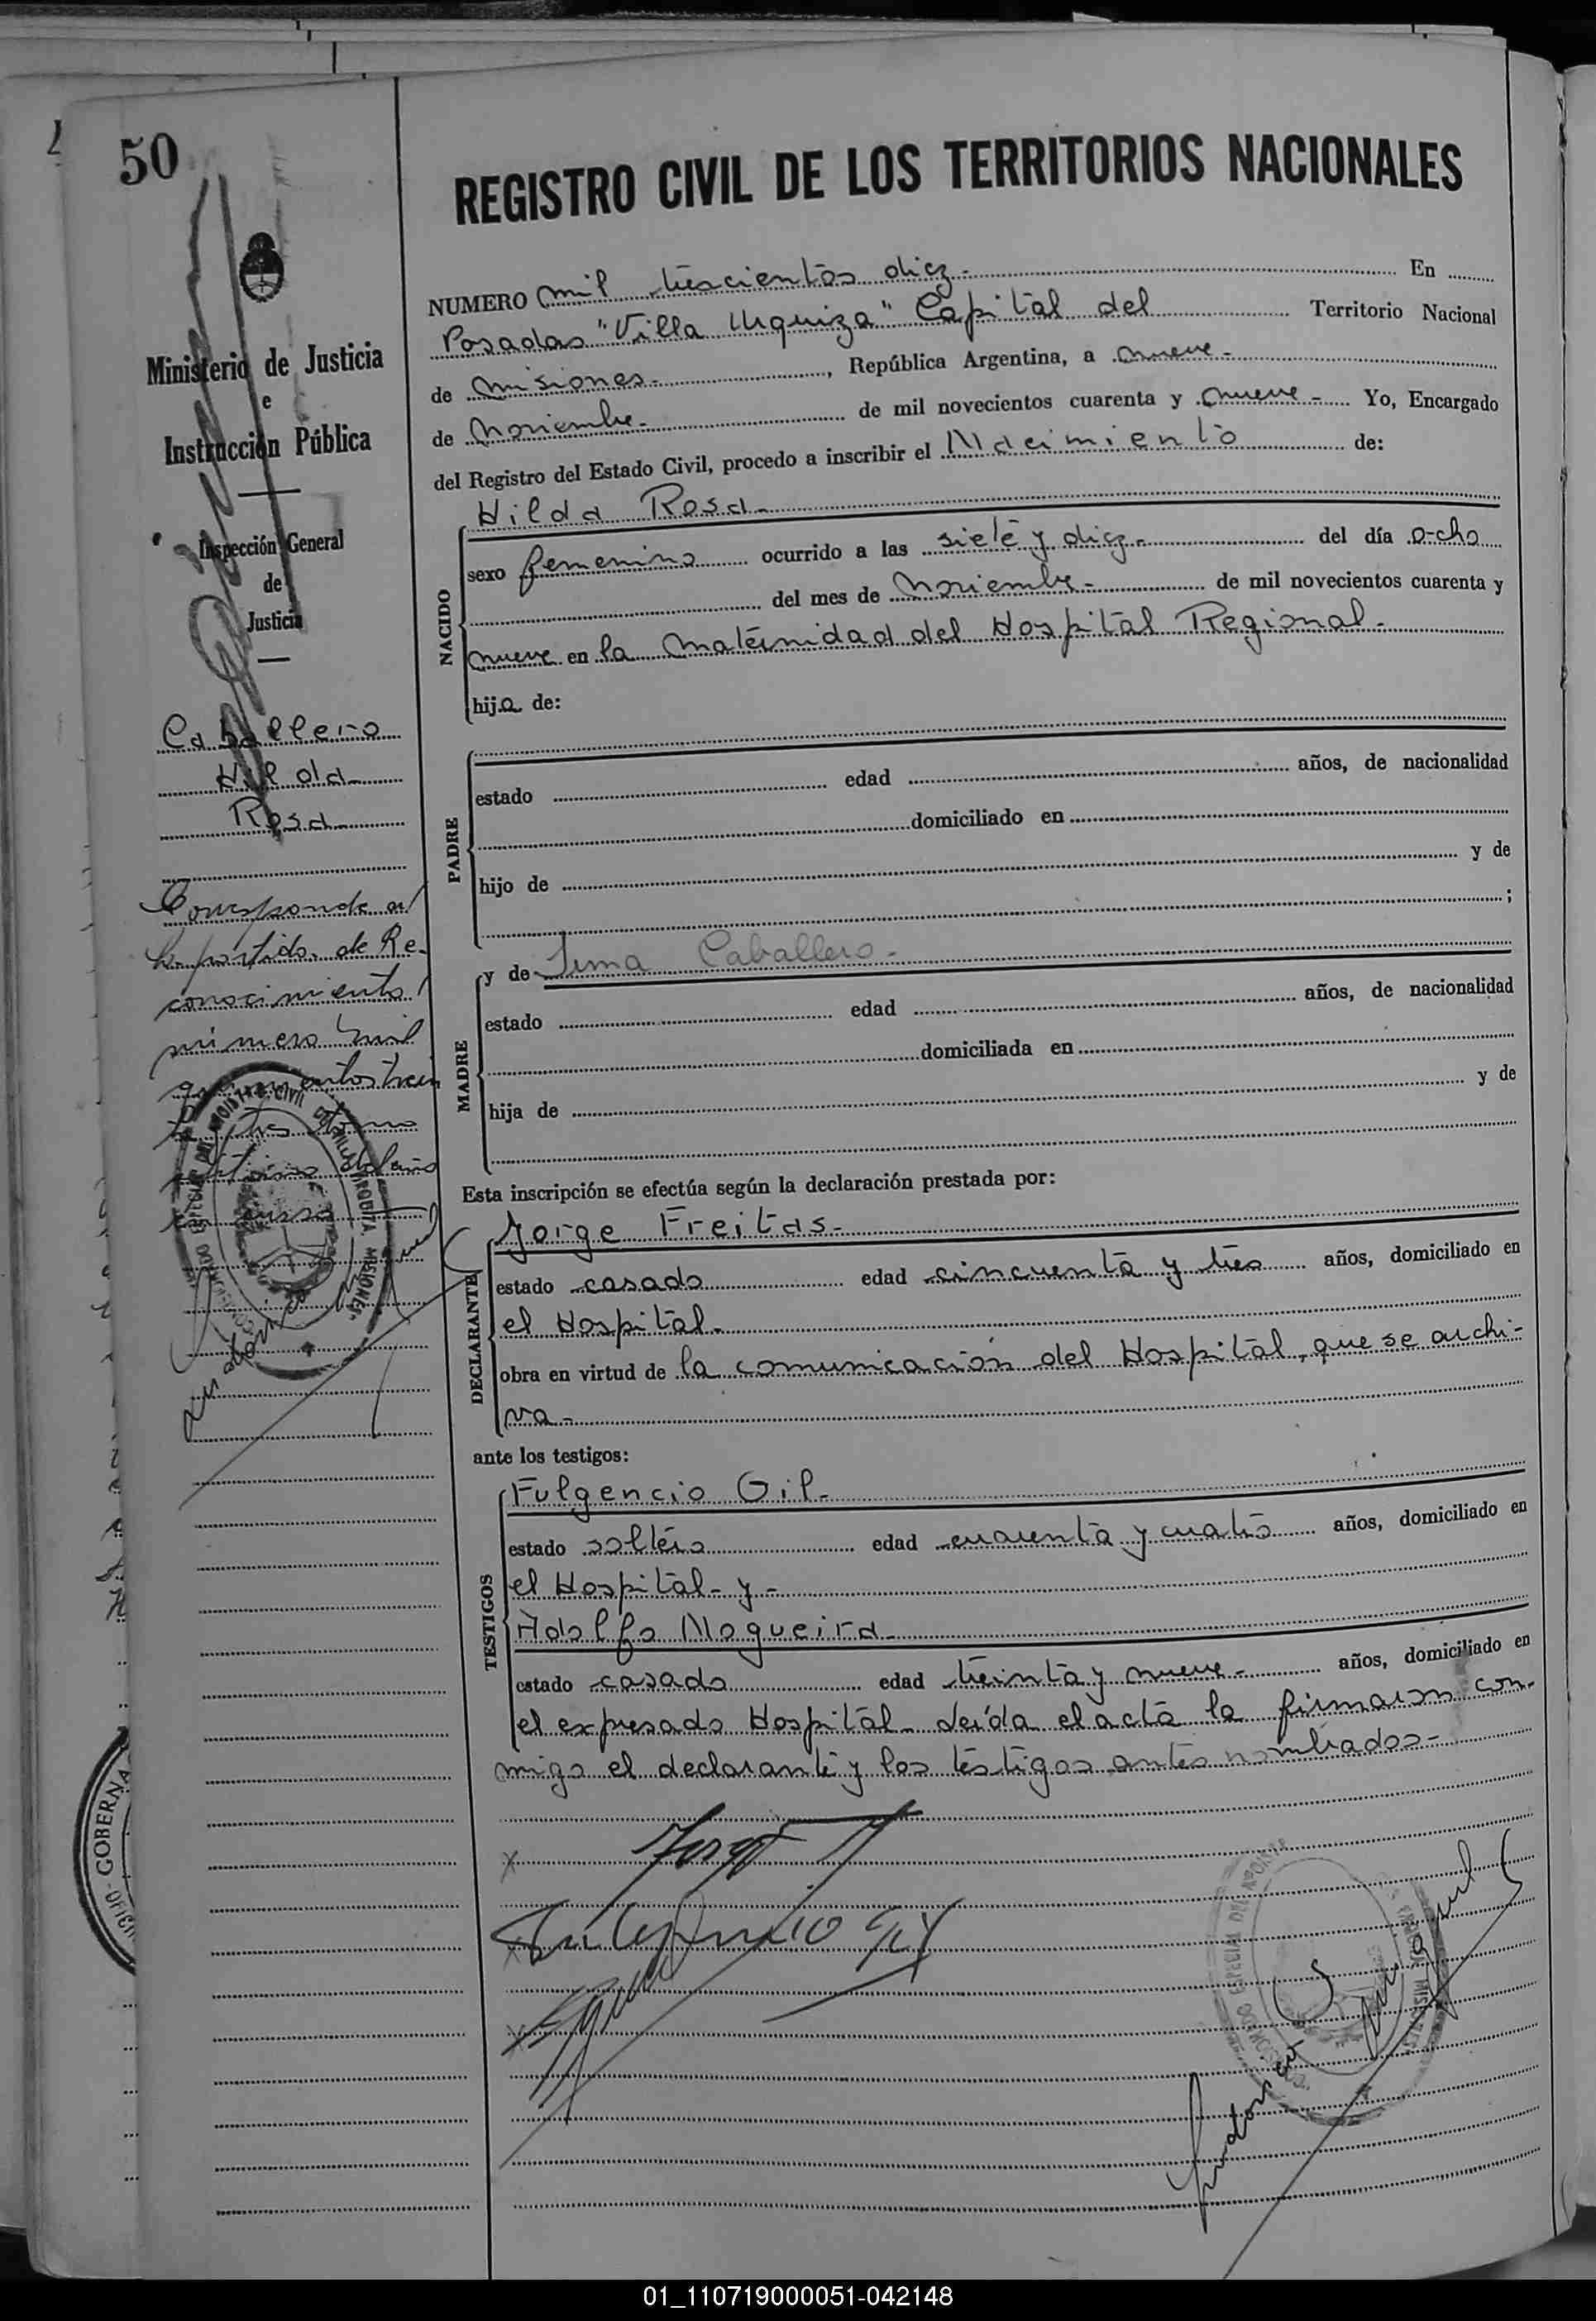 50
REGISTRO CIVIL DE LOS TERRITORIOS NACIONALES
Ministerio de Justicia
e
Instrucción Pública
Inspección General
de
Justicia
Caballero
Hilda
Rosa
Corresponde al
partida de Re-
conocimiento
número mil
NUMERO mil trescientos diez - En
Posadas "Villa Urquiza" Capital del Territorio Nacional
de Misiones - , República Argentina, a nueve -
de Noviembre - de mil novecientos cuarenta y nueve - Yo, Encargado
del Registro del Estado Civil, procedo a inscribir el Nacimiento de:
NACIDO
Hilda Rosa -
sexo femenino ocurrido a las siete y diez - del día ocho
del mes de Noviembre - de mil novecientos cuarenta y
nueve en la Maternidad del Hospital Regional -
hija de:
PADRE
estado edad años, de nacionalidad
domiciliado en
hijo de y de
;
MADRE
y de Irma Caballero -
estado edad años, de nacionalidad
domiciliada en
hija de y de
Esta inscripción se efectúa según la declaración prestada por:
DECLARANTE
Jorge Freitas -
estado casado edad cincuenta y tres años, domiciliado en
el Hospital -
obra en virtud de la comunicación del Hospital, que se archi-
va -
ante los testigos:
TESTIGOS
Fulgencio Gil -
estado soltero edad cuarenta y cuatro años, domiciliado en
el Hospital - y -
Adolfo Nogueira -
estado casado edad treinta y nueve - años, domiciliado en
el expresado Hospital - Leída el acta la firmaron con-
migo el declarante y los testigos antes nombrados -
Fulgencio Gil
01_110719000051-042148